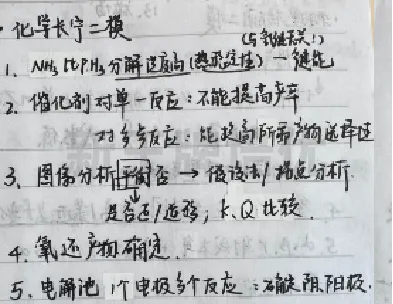 ·化学长宁二模
(与氢键无关!)
1. NH₃比PH₃分解温度高(热稳定性)—键能
2. 催化剂对单一反应:不能提高产率
对多步反应:能提高所需产物选择性
3. 图像分析平衡否→假设法/描点分析.
是否正/逆移;K、Q比较.
4. 氧还产物确定.
5. 电解池1个电极多个反应:不确定阴.阳极.